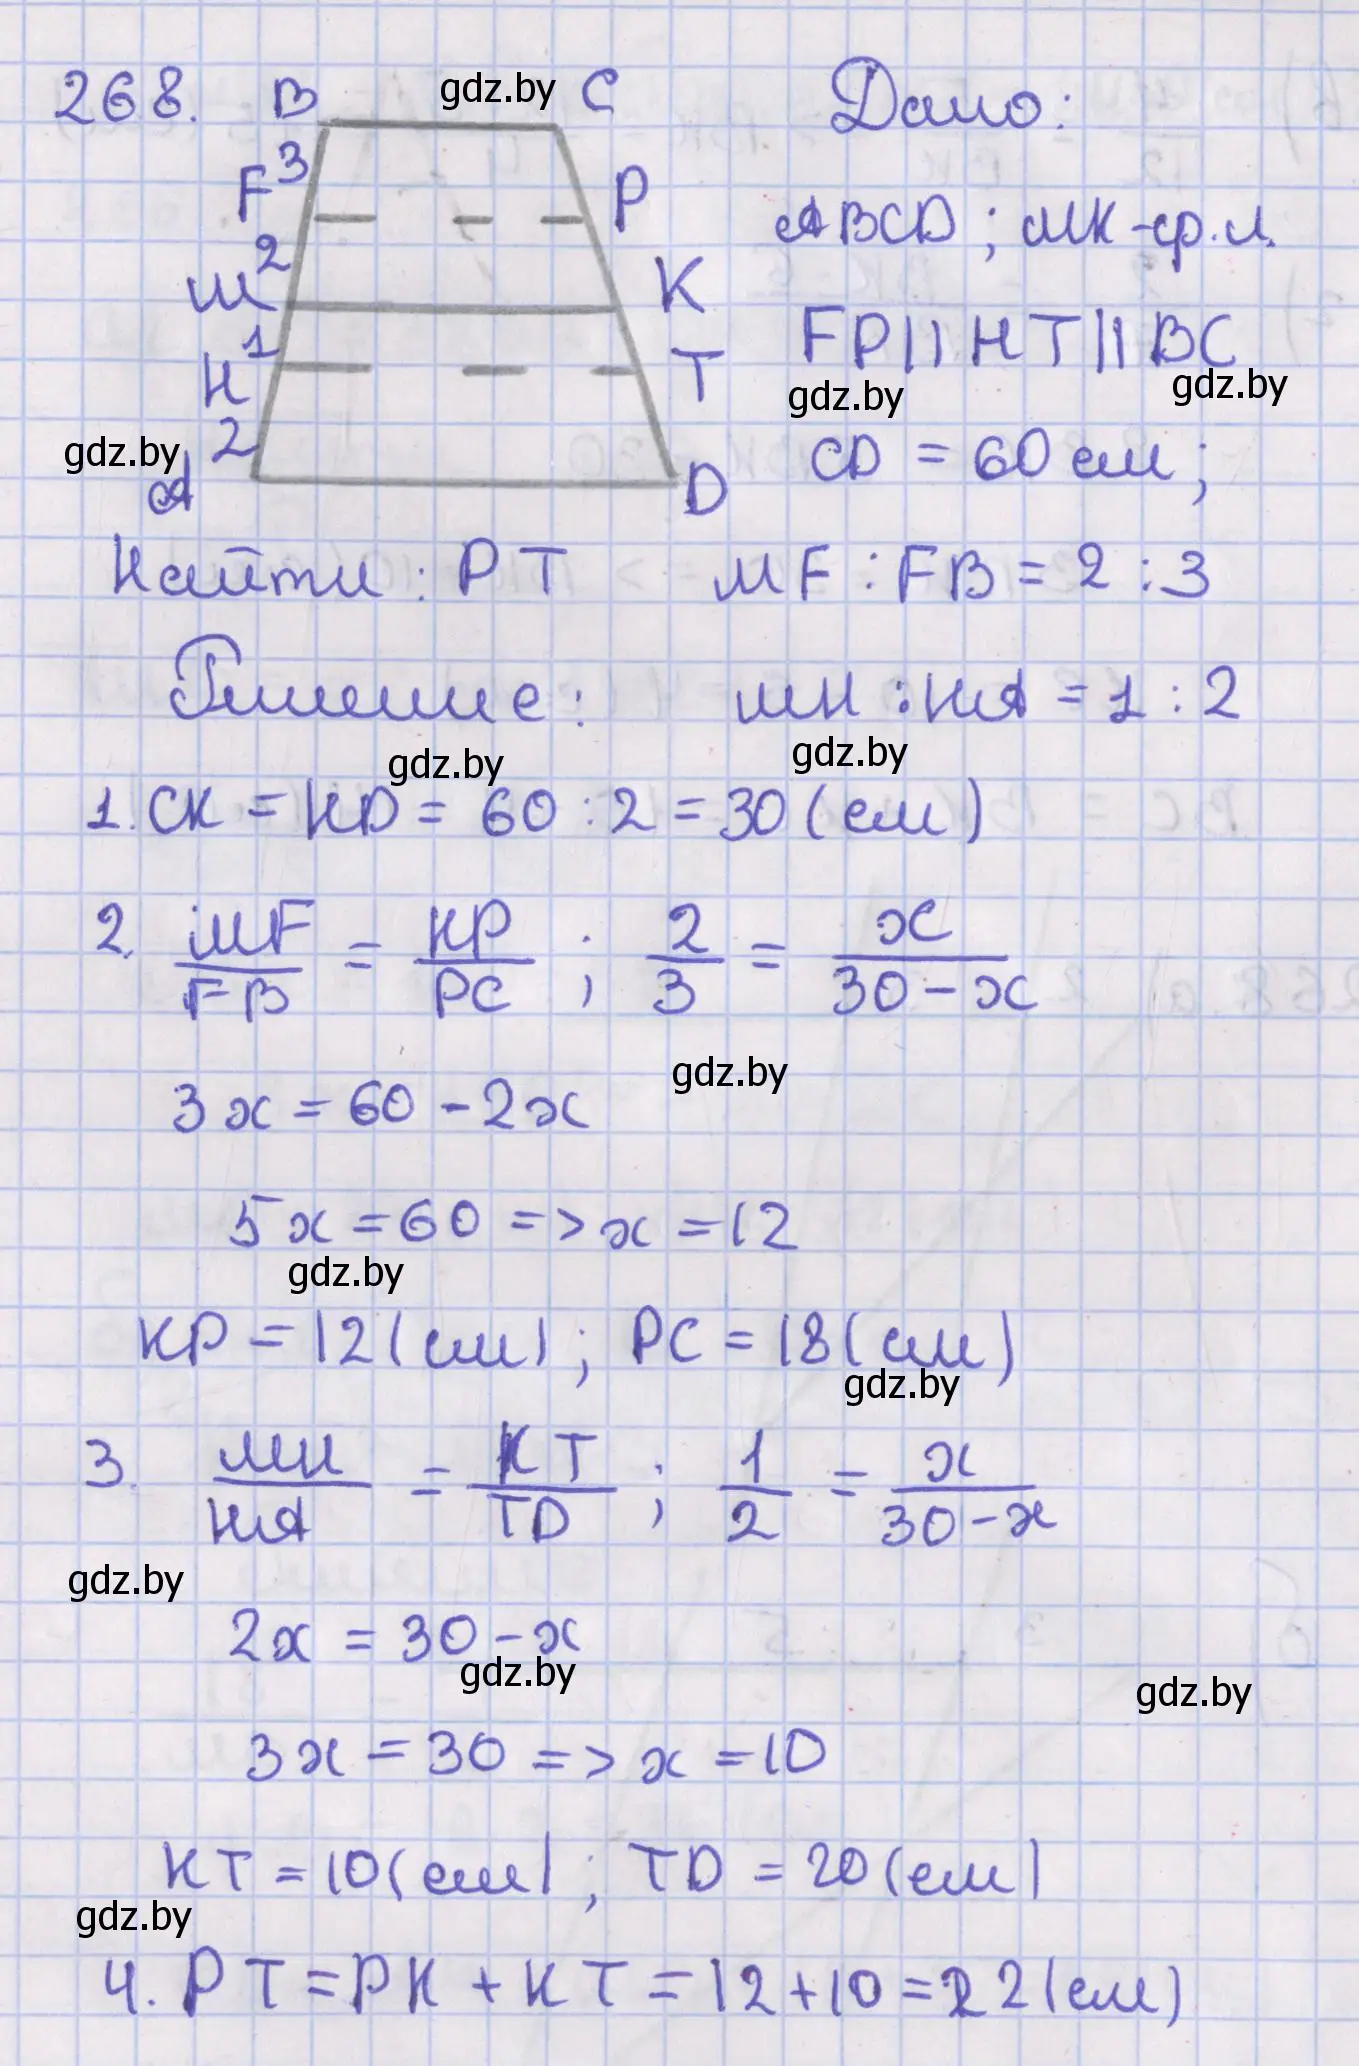 268. B gdz.by C Дано:
F 3 P ABCD ; MK -ср.л.
M 2 K FP || HT || BC
H 1 T gdz.by gdz.by
gdz.by 2 A D CD = 60 см ;
Найти : PT MF : FB = 2 : 3
Решение : MH : HA = 1 : 2
gdz.by gdz.by
1. CK = KD = 60 : 2 = 30 (см)
2. MF/FB = KP/PC ; 2/3 = x/(30 - x)
gdz.by
3x = 60 - 2x
5x = 60 => x = 12
gdz.by
KP = 12 (см) ; PC = 18 (см)
gdz.by
3. MH/HA = KT/TD ; 1/2 = x/(30 - x)
gdz.by
2x = 30 - x
gdz.by gdz.by
3x = 30 => x = 10
KT = 10 (см) ; TD = 20 (см)
gdz.by
4. PT = PK + KT = 12 + 10 = 22 (см)